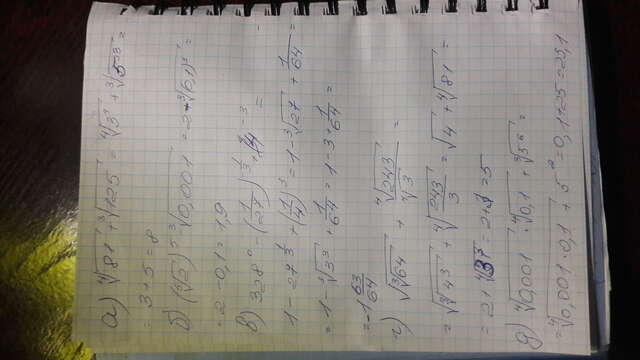 а) ⁴√81 + ³√125 = ⁴√3⁴ + ³√5³ =
= 3+5 = 8
б) (⁵√2)⁵ - ³√0,001 = 2 - ³√(0,1)³ =
= 2 - 0,1 = 1,9
в) 328⁰ - (1/27)^(-1/3) + 4⁻³ =
1 - 27^(1/3) + (1/4)³ = 1 - ³√27 + 1/64 =
= 1 - ³√3³ + 1/64 = 1 - 3 + 1/64 =
= -1 63/64
г) √³√64 + ⁴√243 / ⁴√3 =
= √³√4³ + ⁴√(243/3) = √4 + ⁴√81 =
= 2 + ⁴√3⁴ = 2+3 = 5
д) ⁴√0,001 · ⁴√0,1 + ³√5⁶ =
= ⁴√0,001 · 0,1 + 5² = 0,1+25 = 25,1